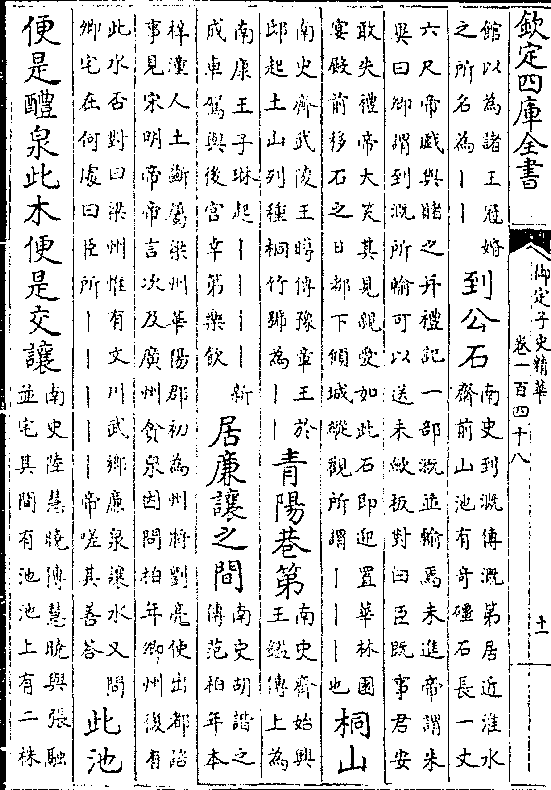 欽定四庫全書
御定子史精華
卷一百四十八
十一
館以為諸王冠婚
之所名為丨丨
到公石
南史到溉傳溉第居近淮水
齋前山池有奇礓石長一丈
六尺帝戲與賭之并禮記一部溉並輸焉未進帝謂朱
异曰卿謂到溉所輸可以送未斂板對曰臣既事君安
敢失禮帝大笑其見親愛如此石即迎置華林園
宴殿前移石之日都下傾城縱觀所謂丨丨丨也
桐山
南史齊武陵王曄傳豫章王於
邸起土山列種桐竹號為丨丨
青陽巷第
南史齊始興
王鑑傳上為
南康王子琳起丨丨丨丨新
成車駕與後宮幸第樂飲
居廉讓之間
南史胡諧之
傳范柏年本
梓潼人土斷屬梁州華陽郡初為州將劉亮使出都諮
事見宋明帝帝言次及廣州貪泉因問柏年卿州復有
此水否對曰梁州惟有文川武鄉廉泉讓水又問
卿宅在何處曰臣所丨丨丨丨丨帝嗟其善答
此池
便是醴泉此木便是交讓
南史陸慧曉傳慧曉與張融
並宅其間有池池上有二株